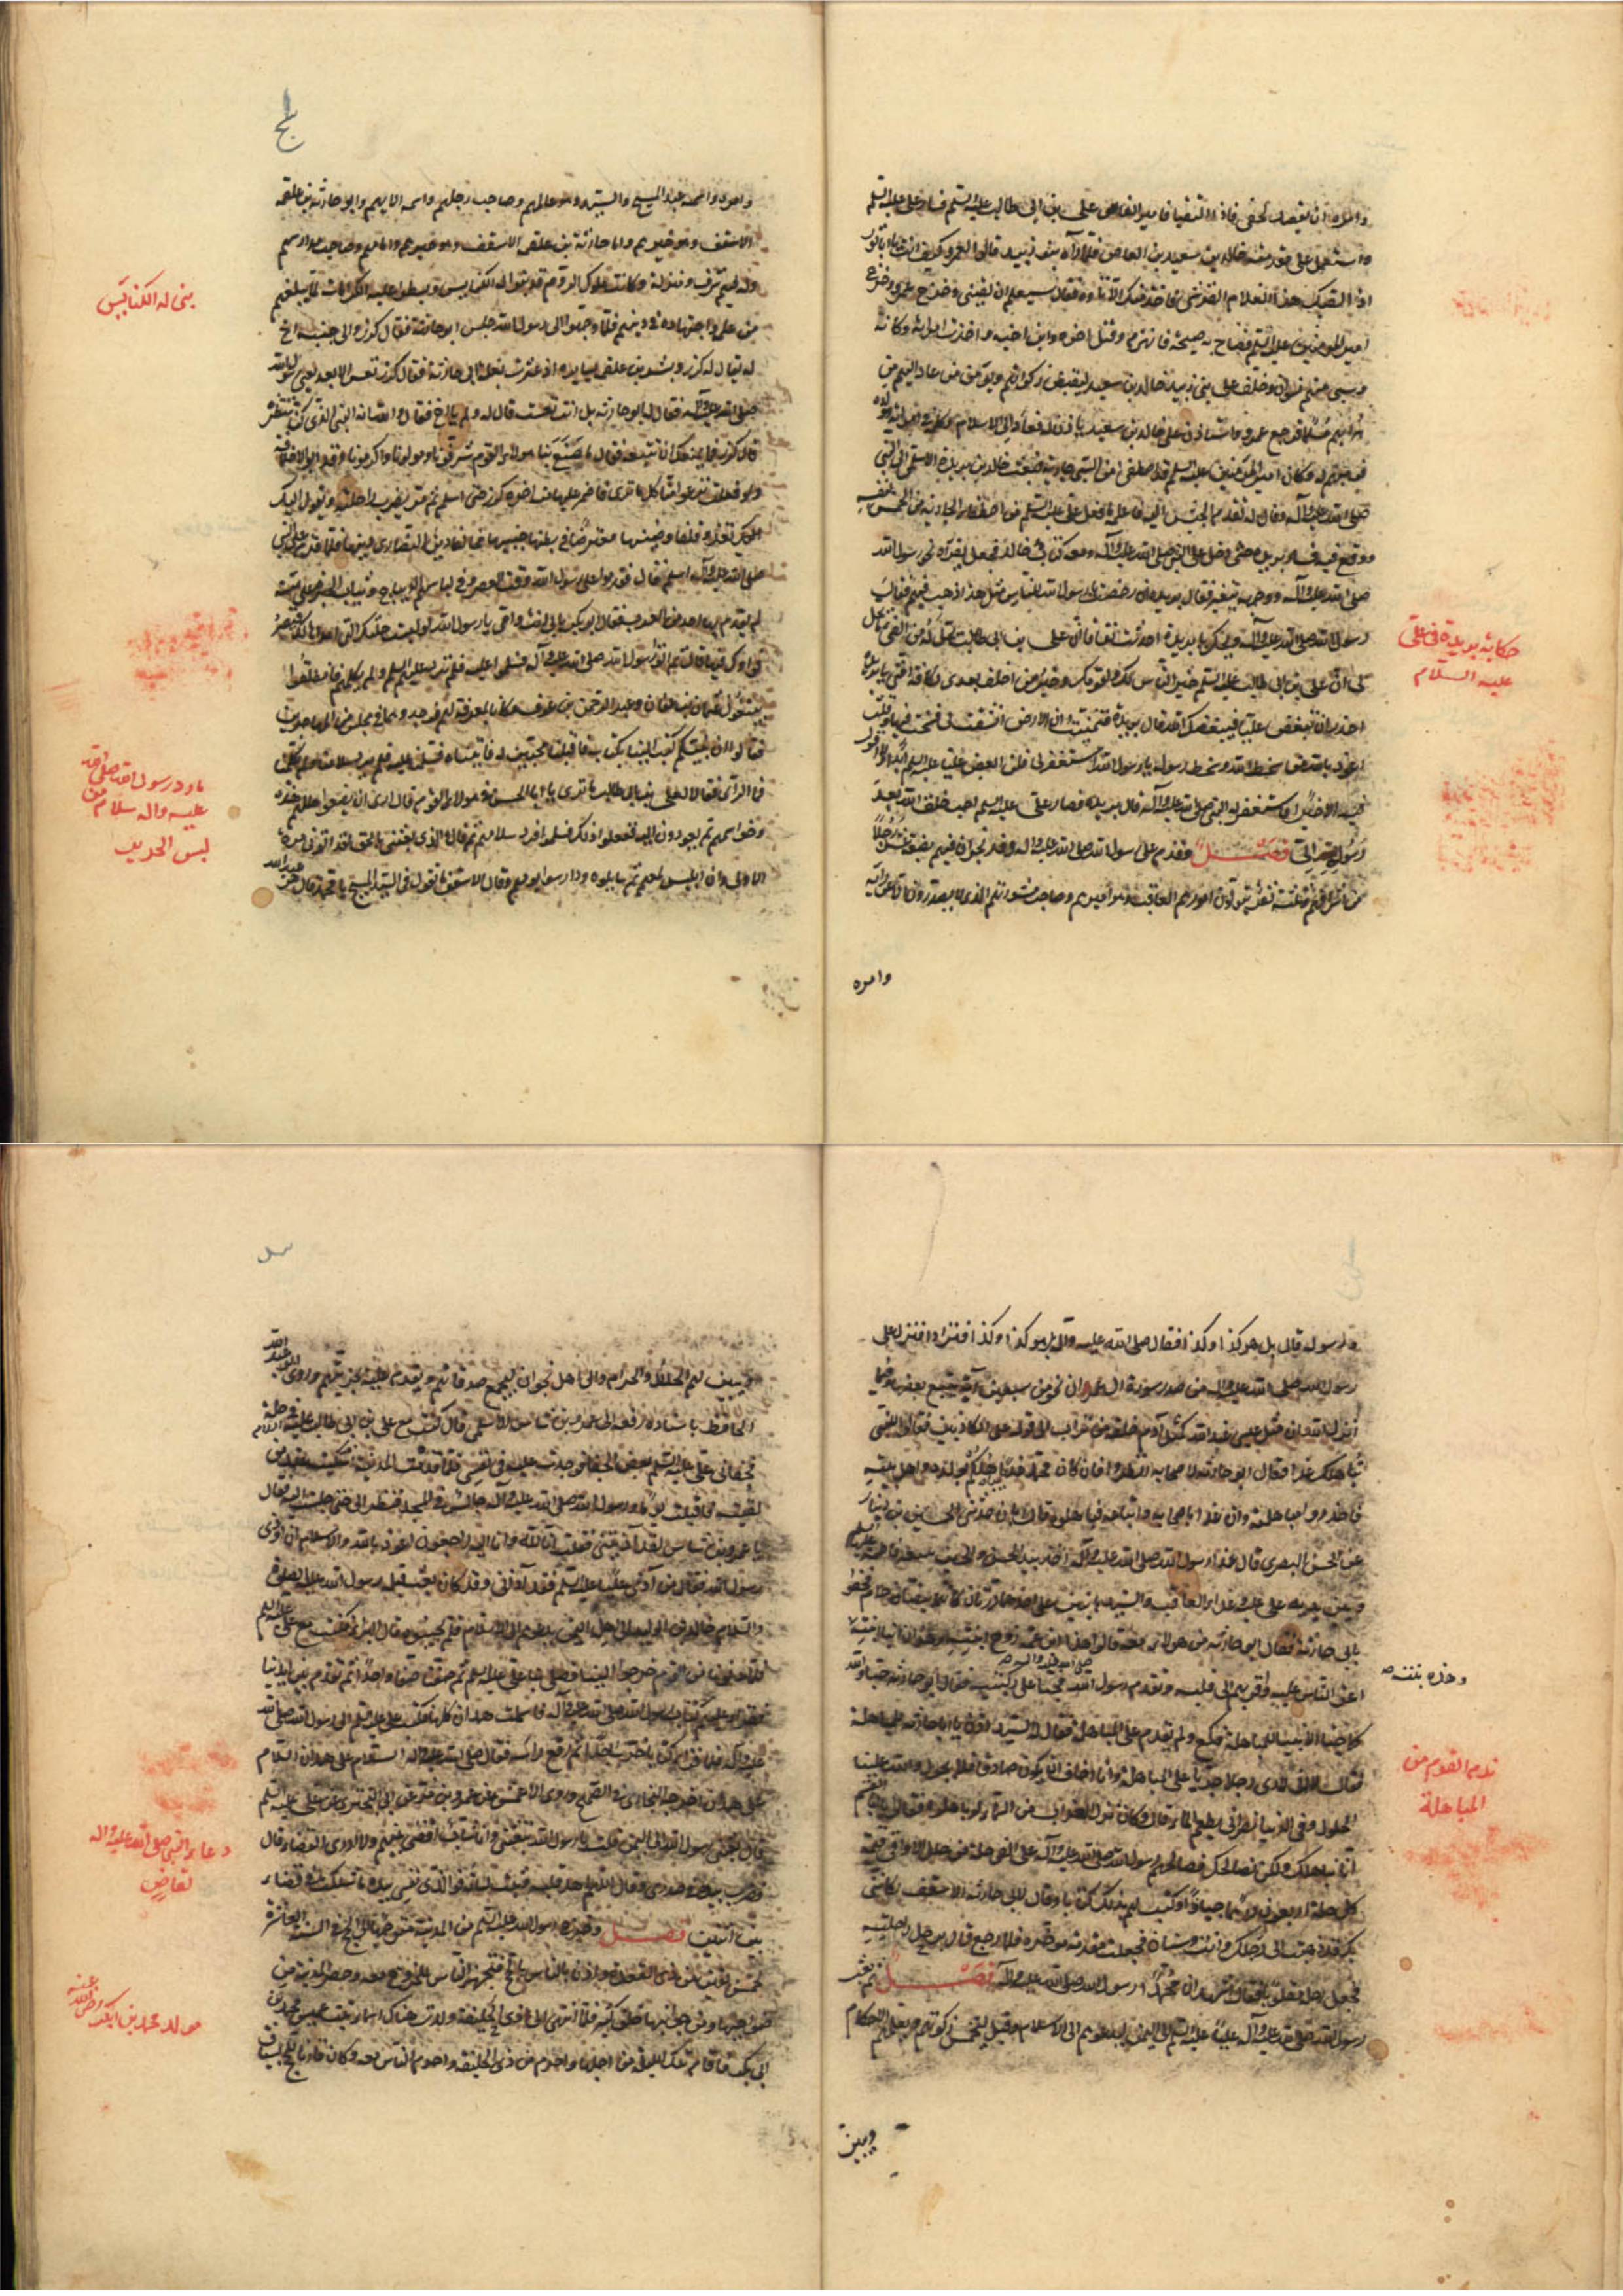 وامره ان يقصد الجعفى فاذا التقيا فامير الناس على بن ابى طالب عليه السلم فسار على عليه السلم
واستعمل على مقدمته خالد بن سعيد بن العاص فلما رآه بنو زبيد قالوا لعمرو كيف انت يا ابا ثور
اذا لقيك هذا الغلام القرشى فاخذ منك الاتاوة فقال سيعلم ان لقينى وخرج عمرو وخرج
امير المؤمنين عليه السلم فصاح به صيحة فانهزم وقتل اخوه وابن اخيه واخذت امراته ركانة
وسبى منهم نسوان وخلف على بنى زبيد خالد بن سعيد ليقبض زكواتهم ويؤمن من عاد اليهم من
هرابهم مسلما فرجع عمرو واستاذن على خالد بن سعيد فاذن له فعاد الى الاسلام وكلمه فى امراته وولده
فوهبهم له وكان امير المؤمنين عليه السلم قد اصطفى من السبى جارية فبعث خالد بن الوليد بريدة الاسلمى الى النبى
صلى الله عليه وآله وقال له تقدم الجيش اليه فاعلمه بما فعل على عليه السلم من اصطفائه الجارية من الخمس لنفسه
ووقع فيه فسار بريدة حتى دخل على النبى صلى الله عليه وآله ومعه كتاب خالد فجعل يقرأه على رسول الله
صلى الله عليه وآله ووجهه يتغير فقال بريدة ان رخصت يا رسول الله للناس فى مثل هذا ذهب فيئهم فقال
رسول الله صلى الله عليه وآله ويحك يا بريدة احدثت نفاقا ان على بن ابى طالب يحل له من الفئ ما يحل
لى ان على بن ابى طالب عليه السلم خير الناس لك ولقومك وخير من اخلف بعدى لكافة امتى يا بريدة
احذر ان تبغض عليا فيبغضك الله قال بريدة فتمنيت ان الارض انشقت لى فسخت فيها وقلت
اعوذ بالله من سخط الله وسخط رسوله يا رسول الله استغفر لى فلن ابغض عليا عليه السلم ابدا ولا اقول
فيه الا خيرا فاستغفر له النبى صلى الله عليه وآله قال بريدة فصار على عليه السلم احب خلق الله بعد
رسوله الى فصل وقدم على رسول الله صلى الله عليه وآله وفد نجران فيهم بضعة عشر رجلا
من اشرافهم وثلثة نفر يتولون امورهم العاقب وهو اميرهم وصاحب مشورتهم الذى لا يصدرون الا عن رأيه
حكاية بريدة فى على
عليه السلام
وامره
وامره واسمه عبد المسيح والسيد وهو عالمهم وصاحب رحلهم واسمه الايهم وابو حارثة بن علقمة
الاسقف وهو حبرهم وامامهم وصاحب مدارسهم
وله فيهم شرف ومنزلة وكانت ملوك الروم قد بنوا له الكنايس وبسطوا عليه الكرامات لما يبلغهم
من علمه واجتهاده فى دينهم فلما وجهوا الى رسول الله جلس ابو حارثة على بغلة والى جنبه اخ
له يقال له كرز وبشر بن علقمة يسايره اذ عثرت بغلة ابى حارثة فقال كرز تعس الابعد يعنى رسول الله
صلى الله عليه وآله فقال له ابو حارثة بل انت تعست قال له ولم يا اخ فقال والله انه النبى الذى كنا ننتظر
قال كرز فما يمنعك ان تتبعه فقال ما صنع بنا هولاء القوم شرفونا ومولونا واكرمونا وقد ابوا الا خلافه
ولو فعلت نزعوا منا كل ما ترى فاضمر عليها منه اخوه كرز حتى اسلم ثم مر يضرب راحلته ويقول اليك
تغدو قلقا وضينها معترضا فى بطنها جنينها مخالفا دين النصارى دينها فلما قدم على النبى
صلى الله عليه وآله اسلم قال فقدموا على رسول الله وقت العصر وفى لباسهم الديباج وثياب الحبرة على هيئة
لم يقدم بها احد من العرب فقال ابو بكر بابى انت وامى يا رسول الله لو لبست حلتك التى اهداها لك قيصر
فرأوك فيها قال ثم اتوا رسول الله صلى الله عليه وآله فسلموا عليه فلم يرد عليهم السلم ولم يكلمهم فانطلقوا
يتبعون عثمان بن عفان وعبد الرحمن بن عوف وكانا معرفة لهم فوجدوهما فى مجلس من المهاجرين
فقالوا ان نبيكم كتب الينا بكتاب فاقبلنا مجيبين له فاتيناه فسلمنا عليه فلم يرد سلامنا ولم يكلمنا
فما الرأى فقالا لعلى بن ابى طالب ما ترى يا ابا الحسن فى هولاء القوم قال ارى ان يضعوا حللهم هذه
وخواتيمهم ثم يعودون اليه ففعلوا ذلك فسلموا فرد سلامهم ثم قال والذى بعثنى بالحق لقد اتونى المرة
الاولى وان ابليس لمعهم ثم سايلوه ودارسوه يومهم وقال الاسقف ما تقول فى السيد المسيح يا محمد قال هو عبد الله
بنى له الكنايس
ما ورد رسول الله صلى الله
عليه واله سلام من
لبس الحرير
ورسوله قال بل هو كذا وكذا فقال صلى الله عليه واله بل هو كذا وكذا فترادا فنزل على
رسول الله صلى الله عليه واله من صدر سورة آل عمران نحو من سبعين آية يتبع بعضها بعضا وفيما
انزل الله ان مثل عيسى عند الله كمثل آدم خلقه من تراب الى قوله على الكاذبين فقالوا للنبى
نباهلك غدا فقال ابو حارثة لاصحابه انظروا فان كان محمد غدا بولده واهل بيته
فاحذروا مباهلته وان غدا باصحابه واتباعه فباهلوه قال ابان حدثنى الحسن بن دينار
عن الحسن البصرى قال غدا رسول الله صلى الله عليه وآله آخذا بيد الحسن والحسين تتبعه فاطمة عليهم السلم
وبين يديه على عليه السلم وغدا العاقب والسيد بابنين على احدهما درتان كانهما بيضتا حمام فحفوا
بابى حارثة فقال ابو حارثة من هولاء معه قالوا هذا ابن عمه زوج ابنته وهذان ابنا ابنته
اعز الناس عليه واقربهم الى قلبه وتقدم رسول الله صلى الله عليه واله فجثا على ركبتيه فقال ابو حارثة جثا والله
كما جثا الانبياء للمباهلة فكع ولم يقدم على المباهلة فقال له السيد ادن يا ابا حارثة للمباهلة
فقال لا انى لارى رجلا جريا على المباهلة وانا اخاف ان يكون صادقا فلا يحول والله علينا
الحول وفى الدنيا نصرانى يطعم الماء قال وكان نزل العذاب من السماء لو باهلوه فقالوا يا ابا القسم
انا لا نباهلك ولكن نصالحك فصالحهم رسول الله صلى الله عليه وآله على الفى حلة من حلل الاواقى قيمة
كل حلة اربعون درهما جيادا وكتب لهم بذلك كتابا وقال لابى حارثة الاسقف لكأننى
بك قد ذهبت الى رحلك وانت وسنان فجعلت مقدمه مؤخره فلما رجع قام يرحل راحلته
فجعل رحله مقلوبا فقال اشهد ان محمدا رسول الله صلى الله عليه وآله فصل ثم بعث
رسول الله صلى الله عليه وآله عليا عليه السلم الى اليمن ليدعوهم الى الاسلام وقيل ليخمس زكوتهم ويعلمهم الاحكام
وهذه بنته
ندم القوم من
المباهلة
ويبين
ويبين لهم الحلال والحرام والى اهل نجران ليجمع صدقاتهم ويقدم عليه بجزيتهم وروى ابو عبد الله
الحافظ باسناده رفعه الى عمرو بن شاس الاسلمى قال كنت مع على بن ابى طالب عليه السلام فى خيله
فجفانى على عليه السلم بعض الجفا فوجدت عليه فى نفسى فلما قدمت المدينة اشتكيته عند من
لقيته فاقبلت يوما ورسول الله صلى الله عليه وآله جالس فى المسجد فنظر الى حتى جلست اليه فقال
يا عمرو بن شاس لقد آذيتنى فقلت انا لله وانا اليه راجعون اعوذ بالله والاسلام ان اوذى
رسول الله فقال من آذى عليا عليه السلم فقد آذانى وقد كان بعث قبله رسول الله عليه الصلوة
والسلام خالد بن الوليد الى اهل اليمن يدعوهم الى الاسلام فلم يجيبوه قال البراء فكنت مع على عليه السلم
فلما دنونا من القوم خرجوا الينا فصلى بنا على عليه السلم ثم صفنا صفا واحدا ثم تقدم بين ايدينا
فقرأ عليهم كتاب رسول الله صلى الله عليه وآله فاسلمت همدان كلها فكتب على عليه السلم الى رسول الله صلى الله
عليه وآله فلما قرأ الكتاب خر ساجدا ثم رفع رأسه فقال صلى الله عليه وآله السلام على همدان السلام
على همدان اخرجه البخارى فى الصحيح وروى الاعمش عن عمرو بن مرة عن ابى البخترى عن على عليه السلم
قال بعثنى رسول الله الى اليمن قلت يا رسول الله تبعثنى وانا شاب اقضى بينهم ولا ادرى ما القضاء قال
فضرب بيده فى صدرى وقال اللهم اهد قلبه وثبت لسانه فوالذى نفسى بيده ما شككت فى قضاء
بين اثنين فصل وخرج رسول الله عليه السلم من المدينة متوجها الى الحج فى السنة العاشرة
لخمس بقين من ذى القعدة واذن فى الناس بالحج فتجهز الناس للخروج معه وحضر المدينة من
ضواحيها ومن جوانبها خلق كثير فلما انتهى الى ذى الحليفة ولدت هناك اسماء بنت عميس محمد بن
ابى بكر فاقام تلك الليلة من اجلها واحرم من ذى الحليفة واحرم الناس معه وكان قارنا للحج بسياق
دعاء النبى صلى الله عليه واله
لقاض
مولد محمد بن ابى بكر رضى الله عنه